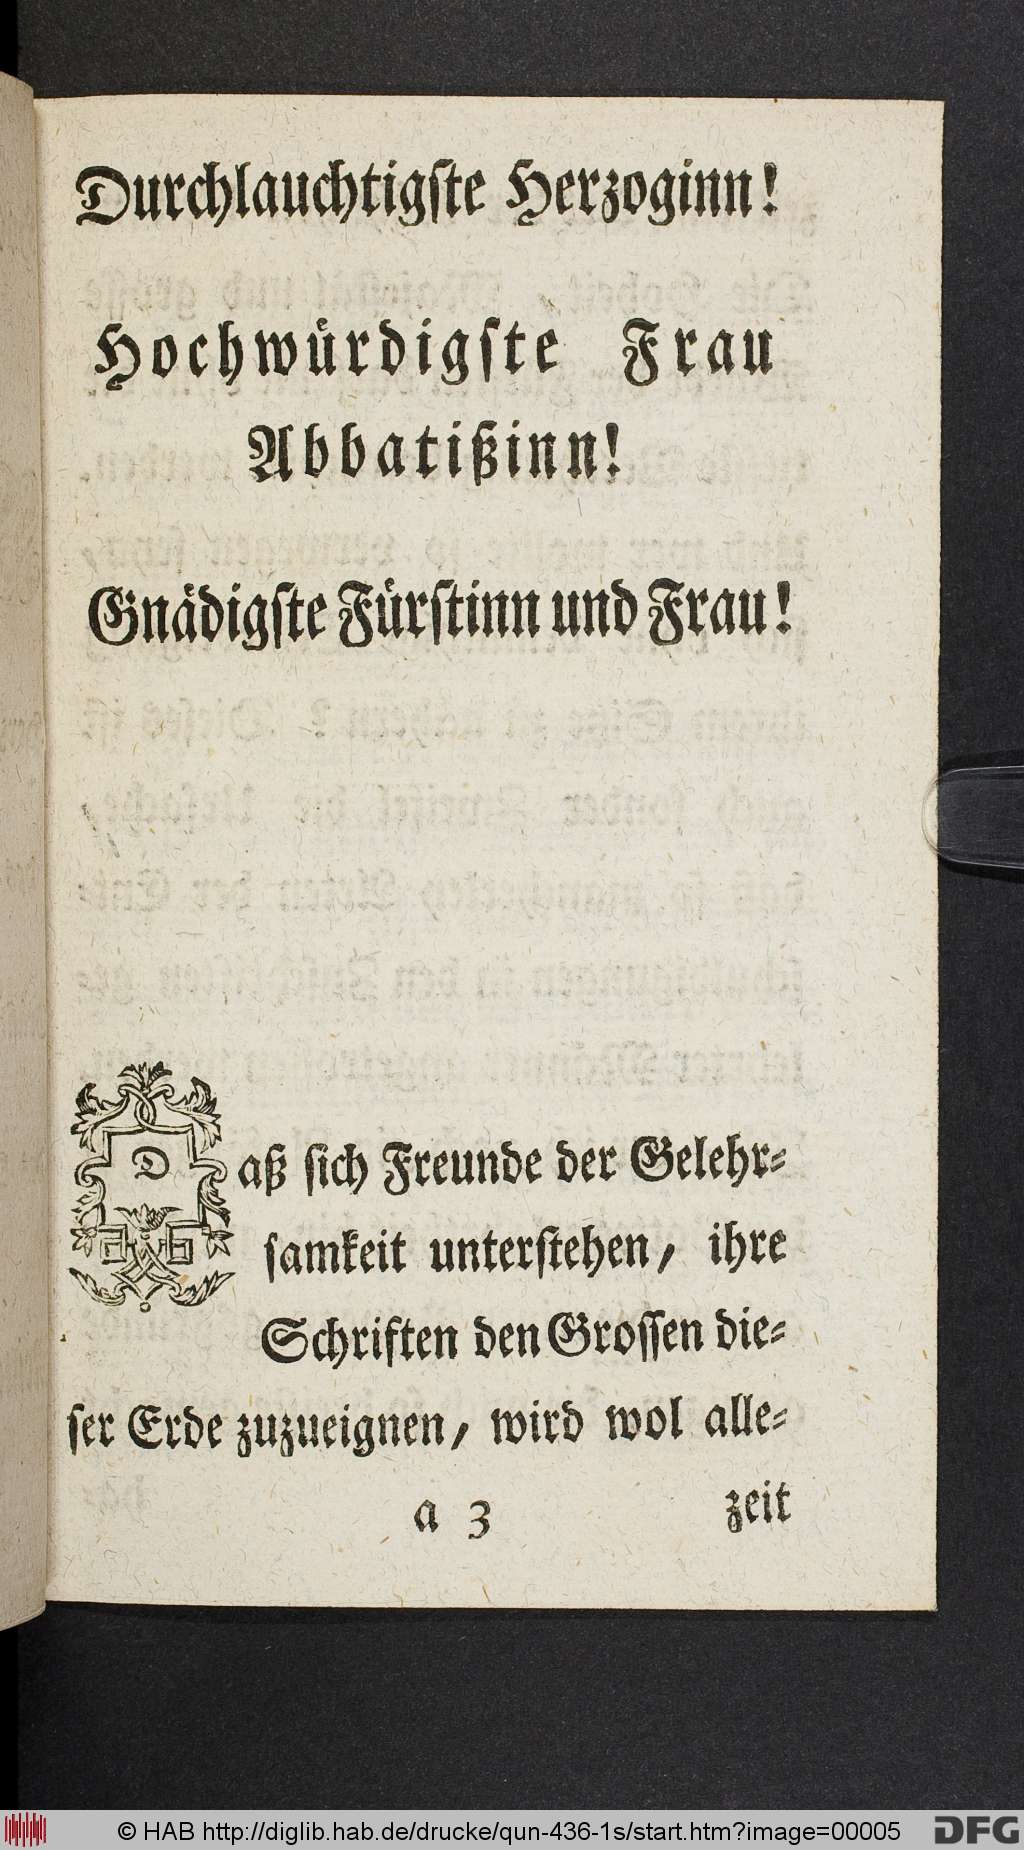 Durchlauchtigste Herzoginn!
Hochwürdigste Frau
Abbatißinn!
Gnädigste Fürstinn und Frau!
Daß sich Freunde der Gelehr⸗
samkeit unterstehen, ihre
Schriften den Grossen die⸗
ser Erde zuzueignen, wird wol alle⸗
a 3 zeit
© HAB http://diglib.hab.de/drucke/qun-436-1s/start.htm?image=00005
DFG